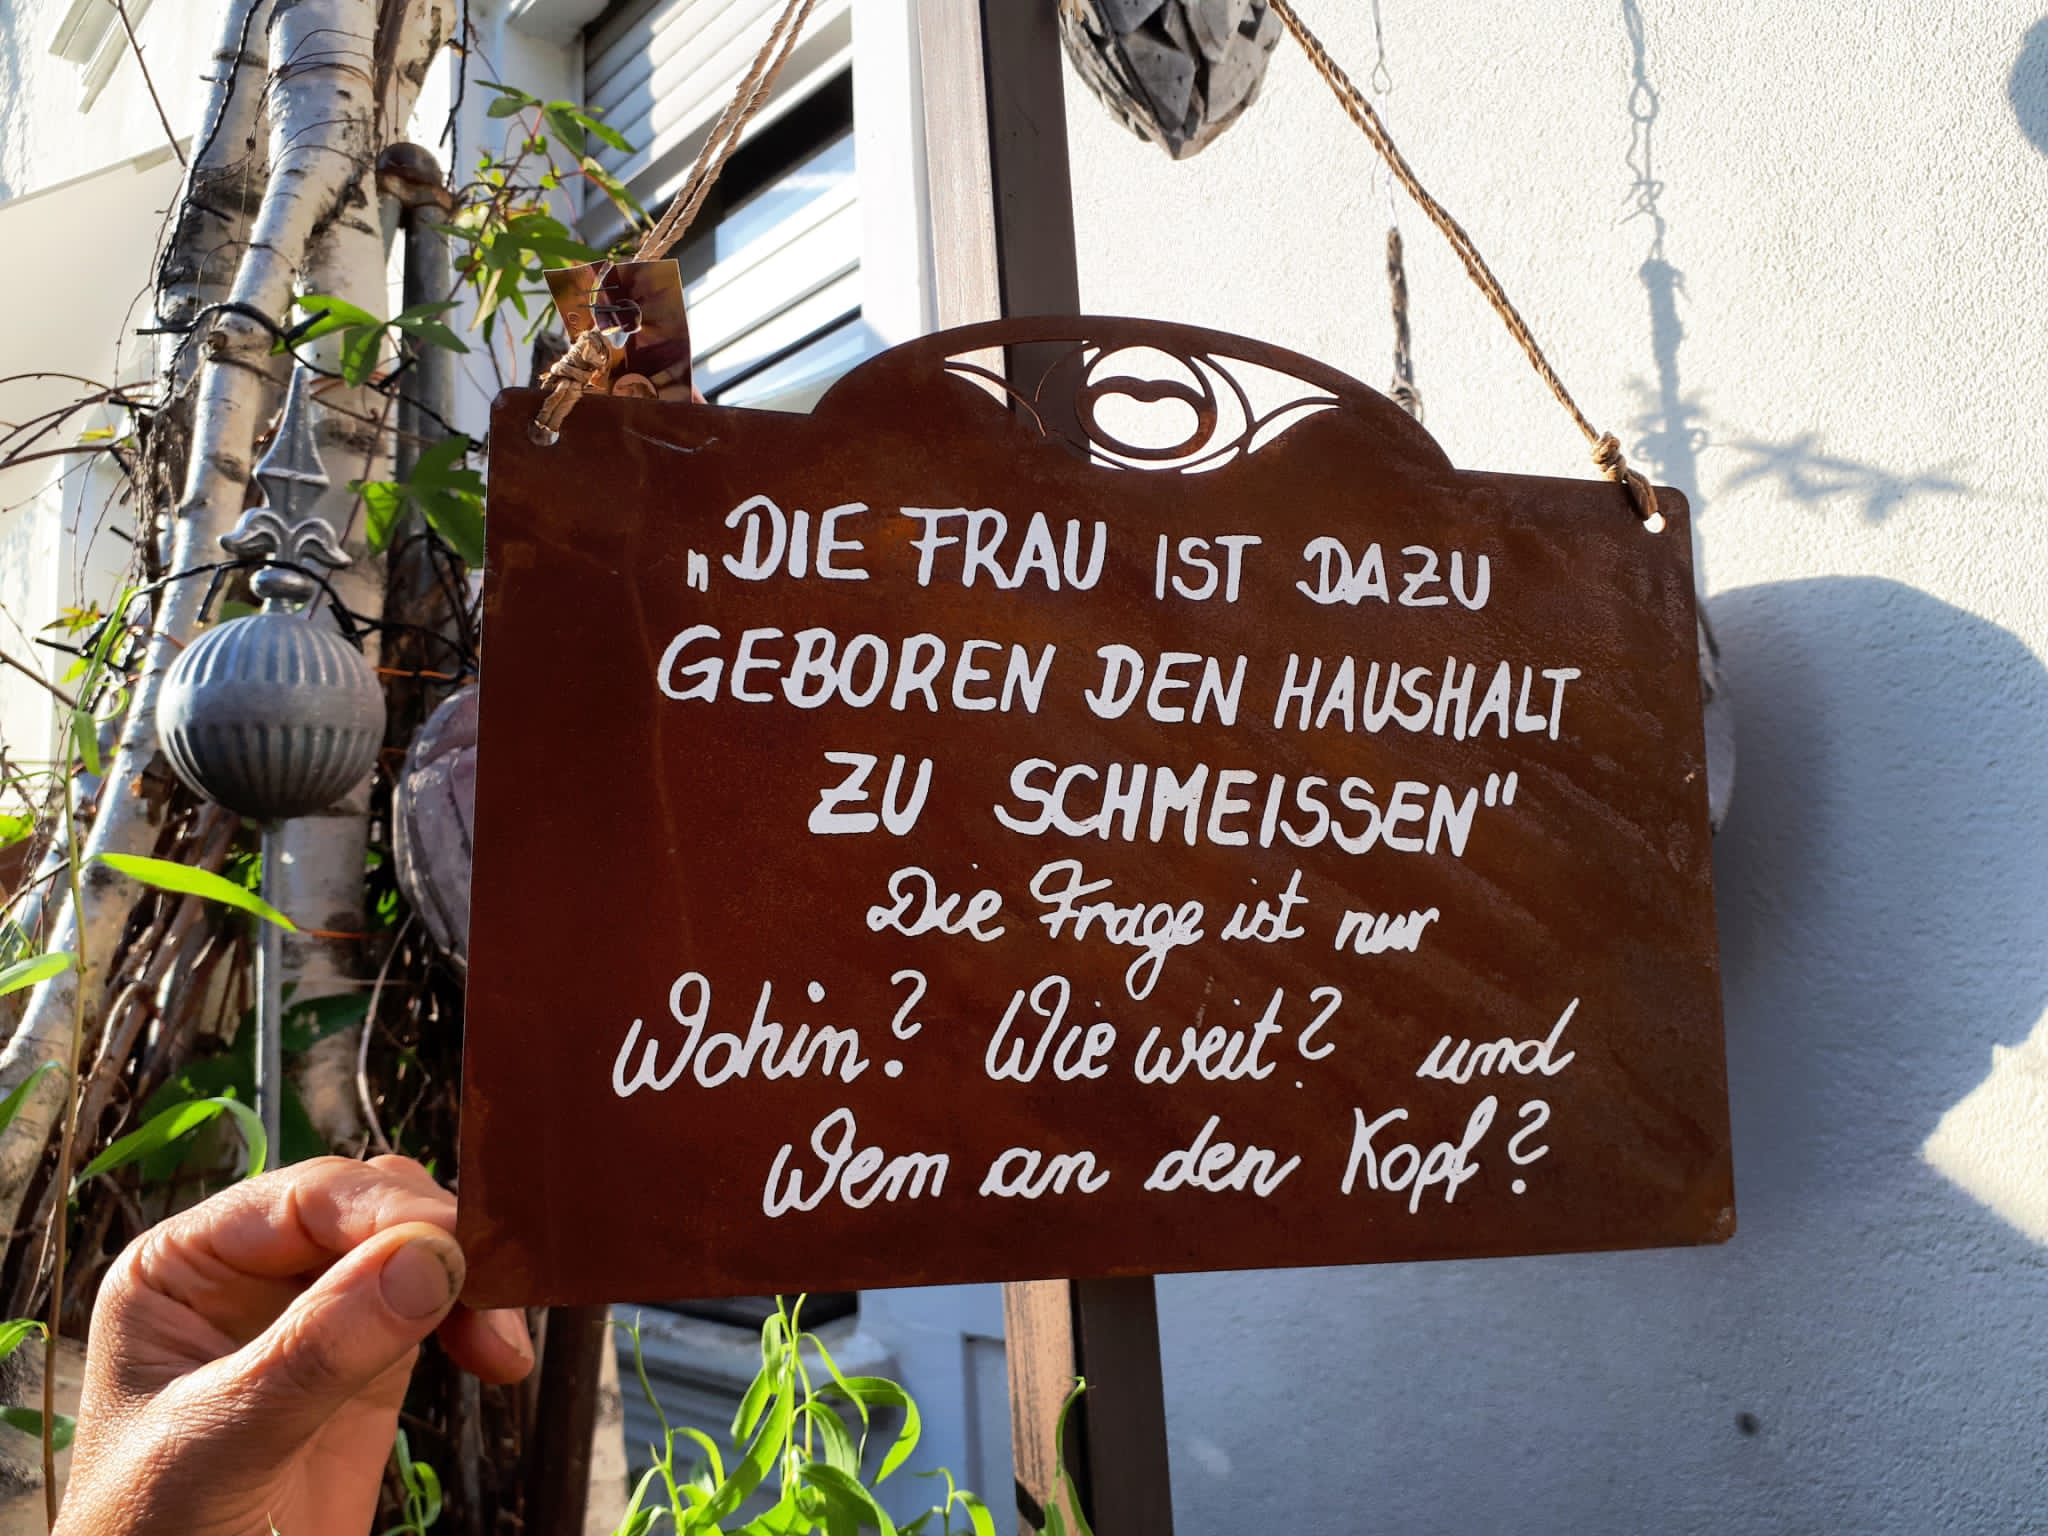 „DIE FRAU IST DAZU
GEBOREN DEN HAUSHALT
ZU SCHMEISSEN“
Die Frage ist nur
Wohin? Wie weit? und
Wem an den Kopf?